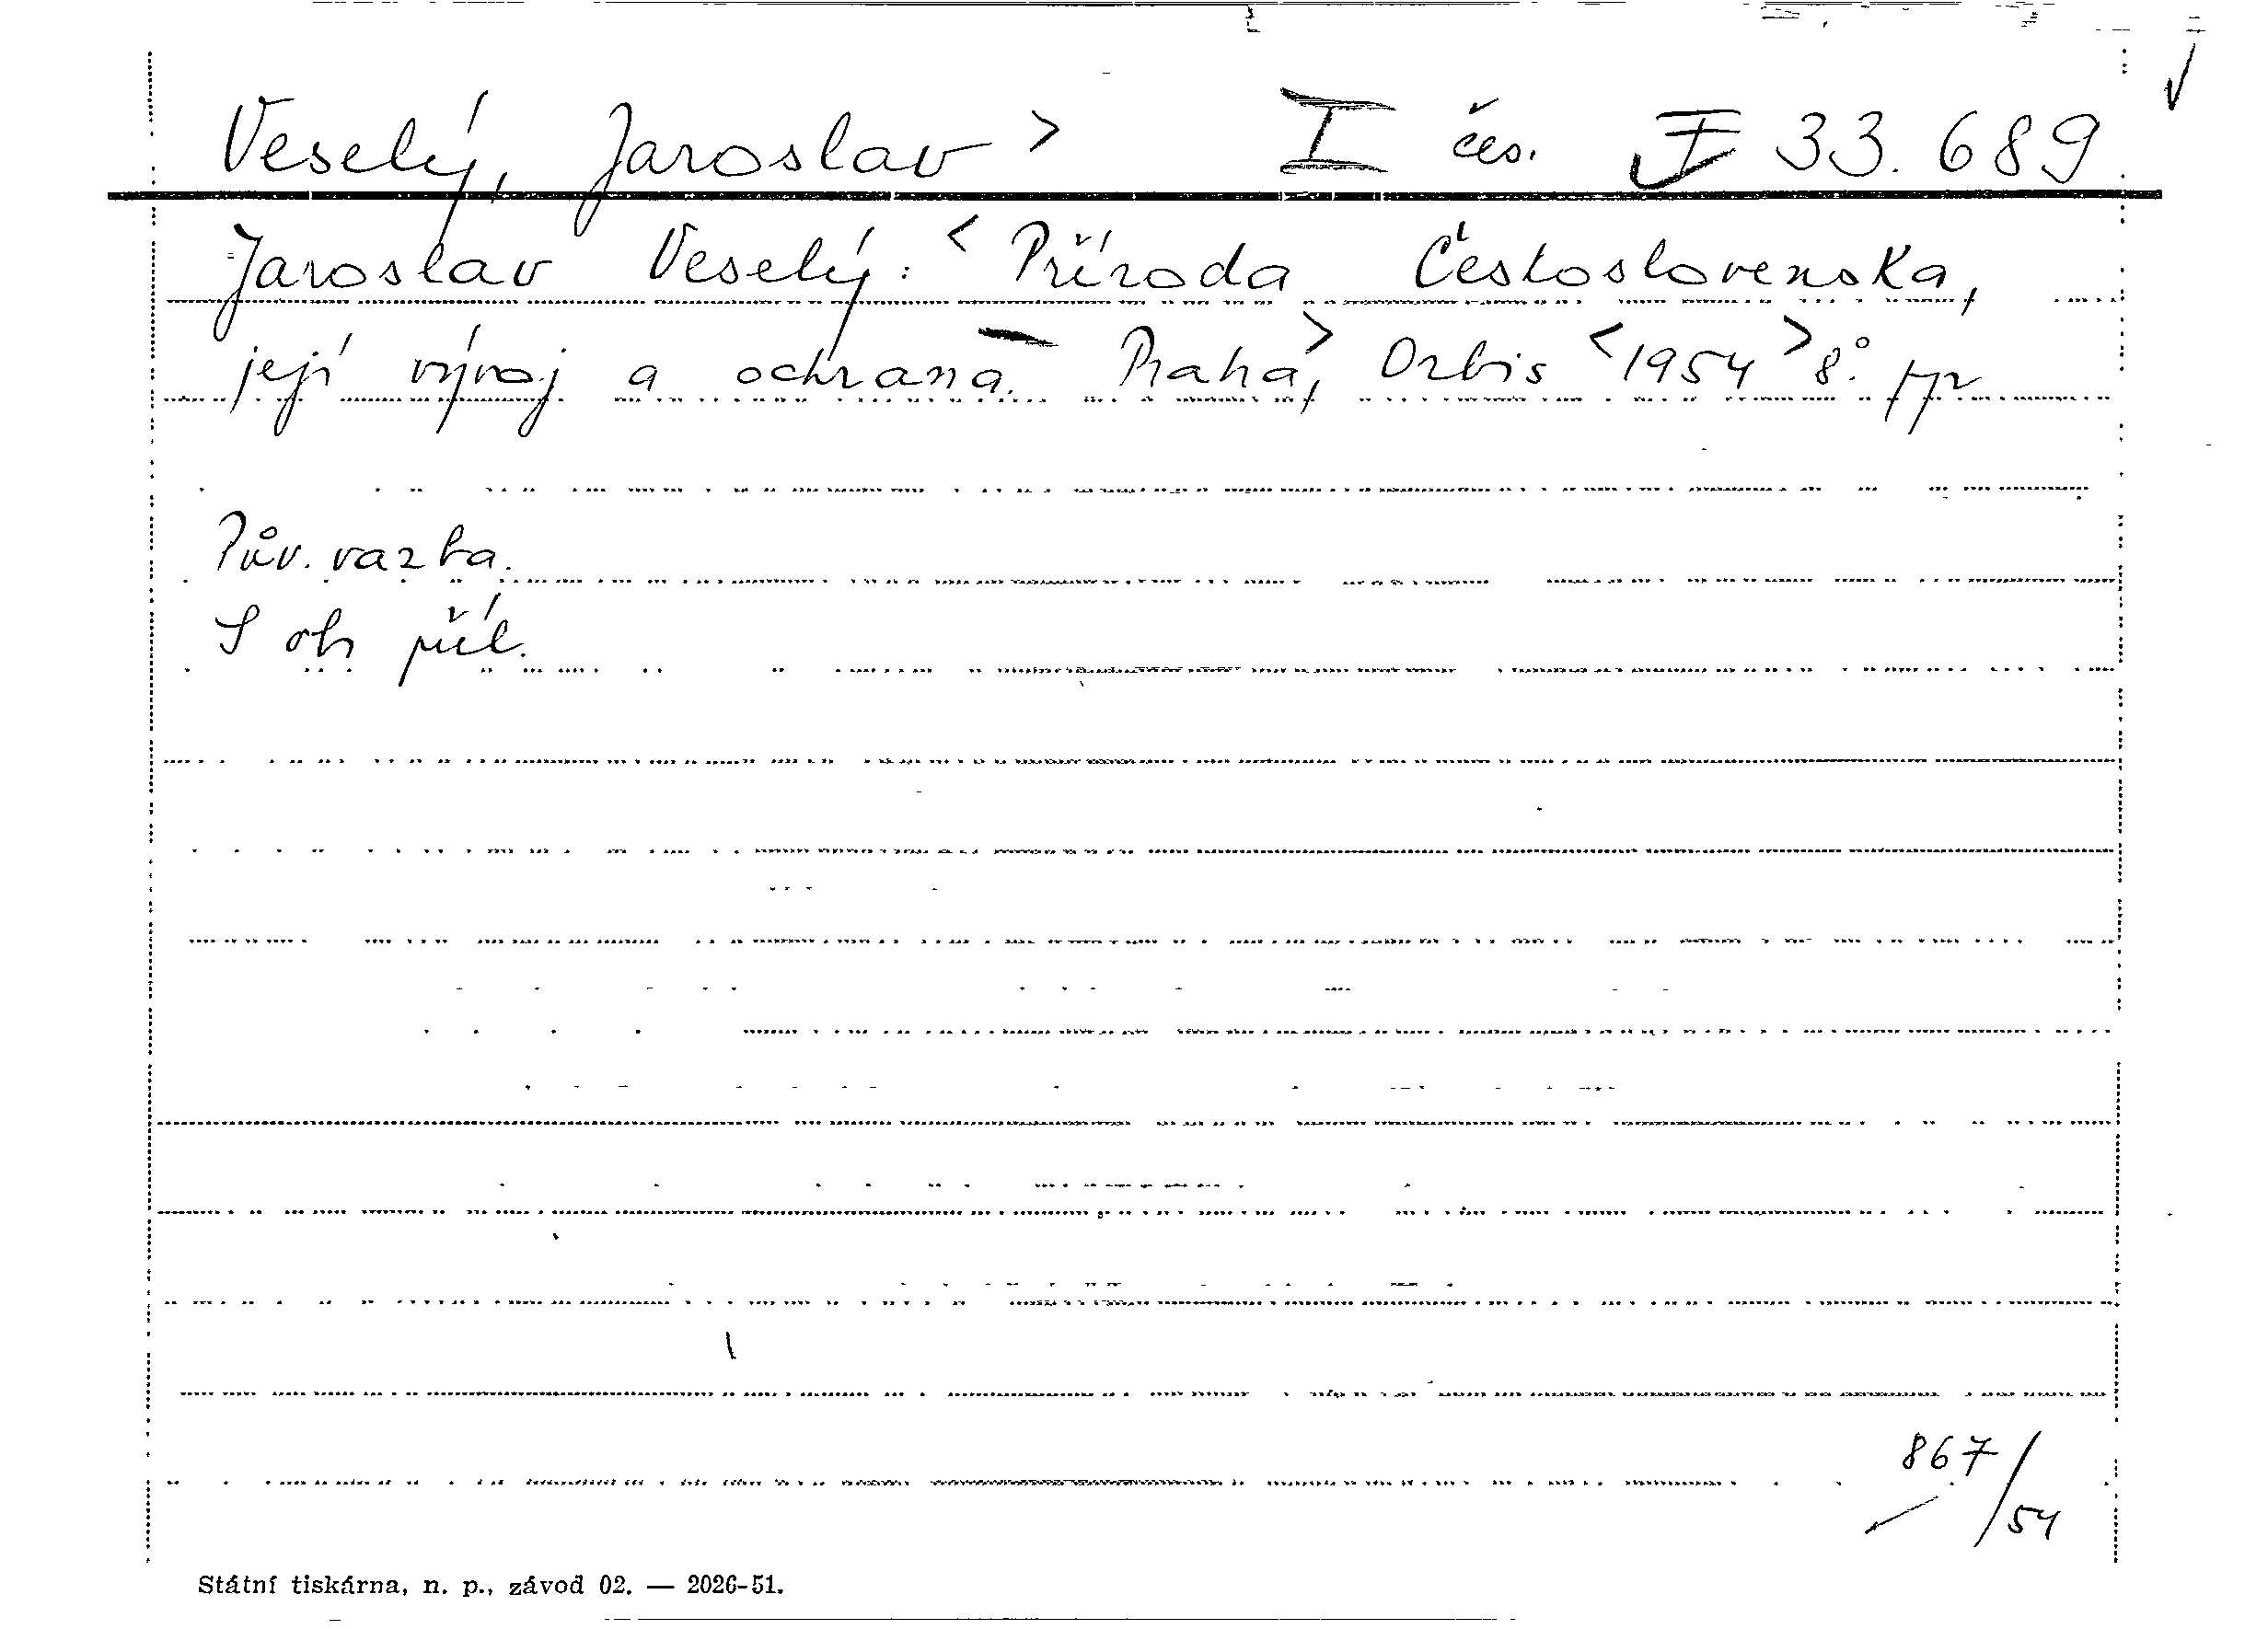 Veselý, Jaroslav > I čes. F 33.689
Jaroslav Veselý: < Příroda Československa,
její vývoj a ochrana. — Praha, > Orbis < 1954 > 8°.
Pův. vazba.
S ob příl.
867/54
Státní tiskárna, n. p., závod 02. — 2026-51.